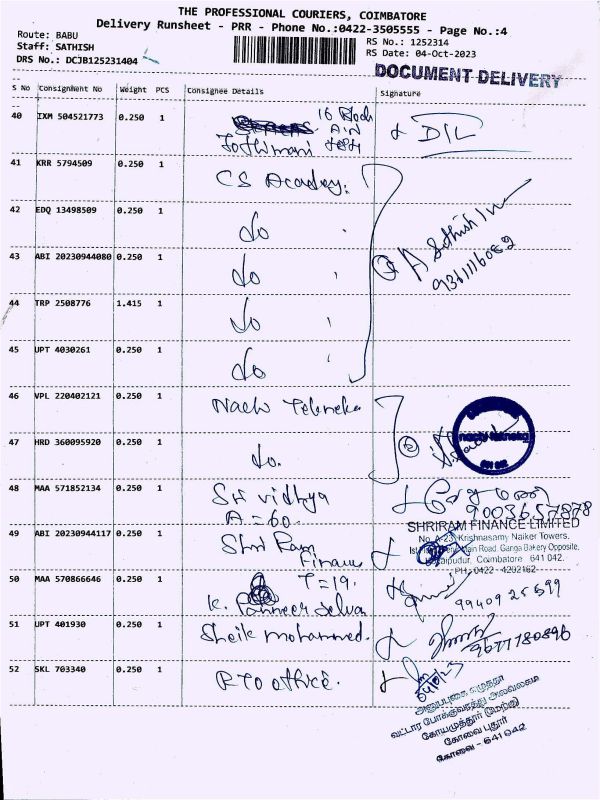 THE PROFESSIONAL COURIERS, COIMBATORE
Delivery Runsheet - PRR - Phone No.:0422-3505555 - Page No.:4
Route: BABU
Staff: SATHISH
DRS No.: DCJB125231404
RS No.: 1252314
RS Date: 04-Oct-2023
DOCUMENT DELIVERY
S No Consignment No Weight PCS Consignee Details Signature
40 IXM 504521773 0.250 1 16 Jothimani
41 KRR 5794509 0.250 1 CS Academy.
42 EDQ 13498509 0.250 1 do
43 ABI 20230944080 0.250 1 do
A Sathish
44 TRP 2508776 1.415 1 do
45 UPT 4030261 0.250 1 do
46 VPL 220402121 0.250 1
47 HRD 360095920 0.250 1 do.
48 MAA 571852134 0.250 1 Sri vidhya
A=60.
9003657878
SHRIRAM FINANCE LIMITED
No. A-23, Krishnasamy Naiker Towers,
Main Road, Ganga Bakery Opposite,
Coimbatore 641 042.
PH: 0422 - 4202162
49 ABI 20230944117 0.250 1 Shri Ram
Finance
50 MAA 570866646 0.250 1 T=19.
K. Panneer Selva
51 UPT 401930 0.250 1 Sheik mohammed.
9677780896
52 SKL 703340 0.250 1 RTO office.
வட்டார போக்குவரத்து அலுவலகம்
கோயமுத்தூர் (மேற்கு)
கோவை புதூர்
கோவை - 641 042